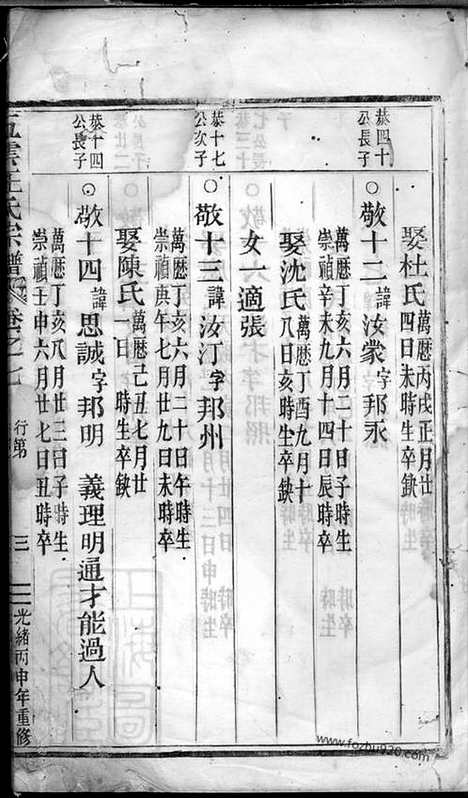 娶杜氏萬曆丙戌正月廿四日未時生卒缺
恭四十公長子
敬十二諱汝蒙字邦永
萬曆丁亥六月二十日子時生
崇禎辛未九月十四日辰時卒
娶沈氏萬曆丁酉九月十八日亥時生卒缺
女一適張
恭十七公次子
敬十三諱汝汀字邦州
萬曆丁亥六月二十日午時生
崇禎庚午七月廿九日未時卒
娶陳氏萬曆己丑七月廿一日時生卒缺
恭十四公長子
敬十四諱思誠字邦明 義理明通才能過人
萬曆丁亥八月廿三日子時生
崇禎壬申六月廿七日丑時卒
氏宗譜 卷之七 行第 三 光緒丙申年重修
www.fozhu920.com